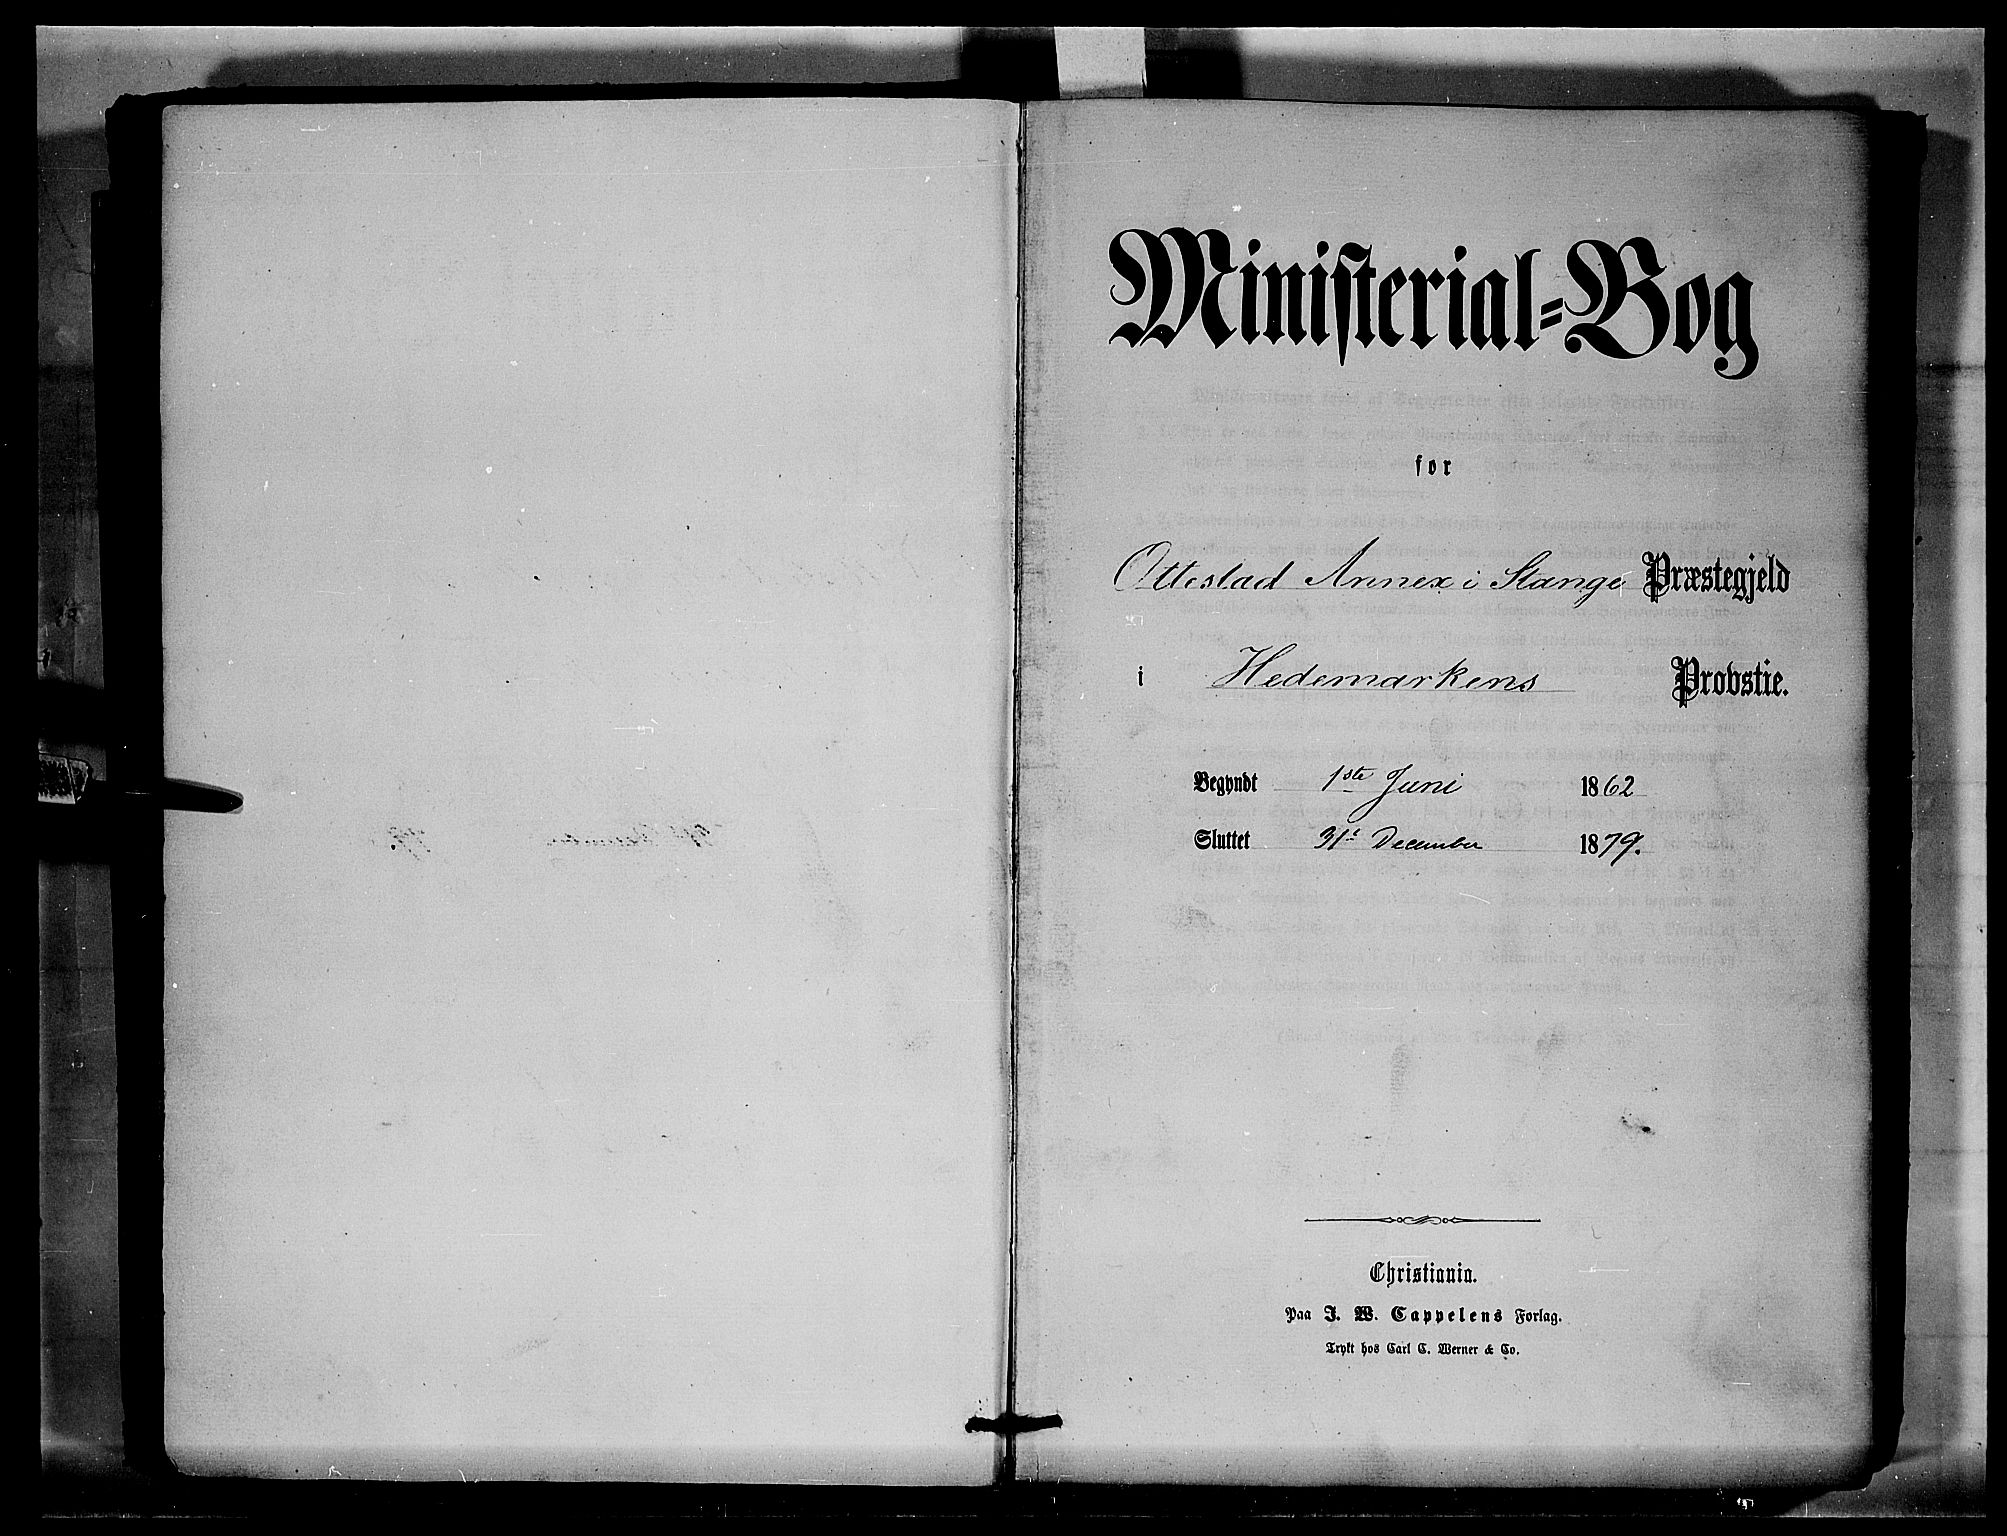 Ministerial-Bog
for
Ottestad Annex i Stange Præstegjeld
i Hedemarkens Provstie.
Begyndt 1ste Juni 1862
Sluttet 31t December 1879.
Christiania.
Paa J. W. Cappelens Forlag.
Trykt hos Carl C. Werner & Co.